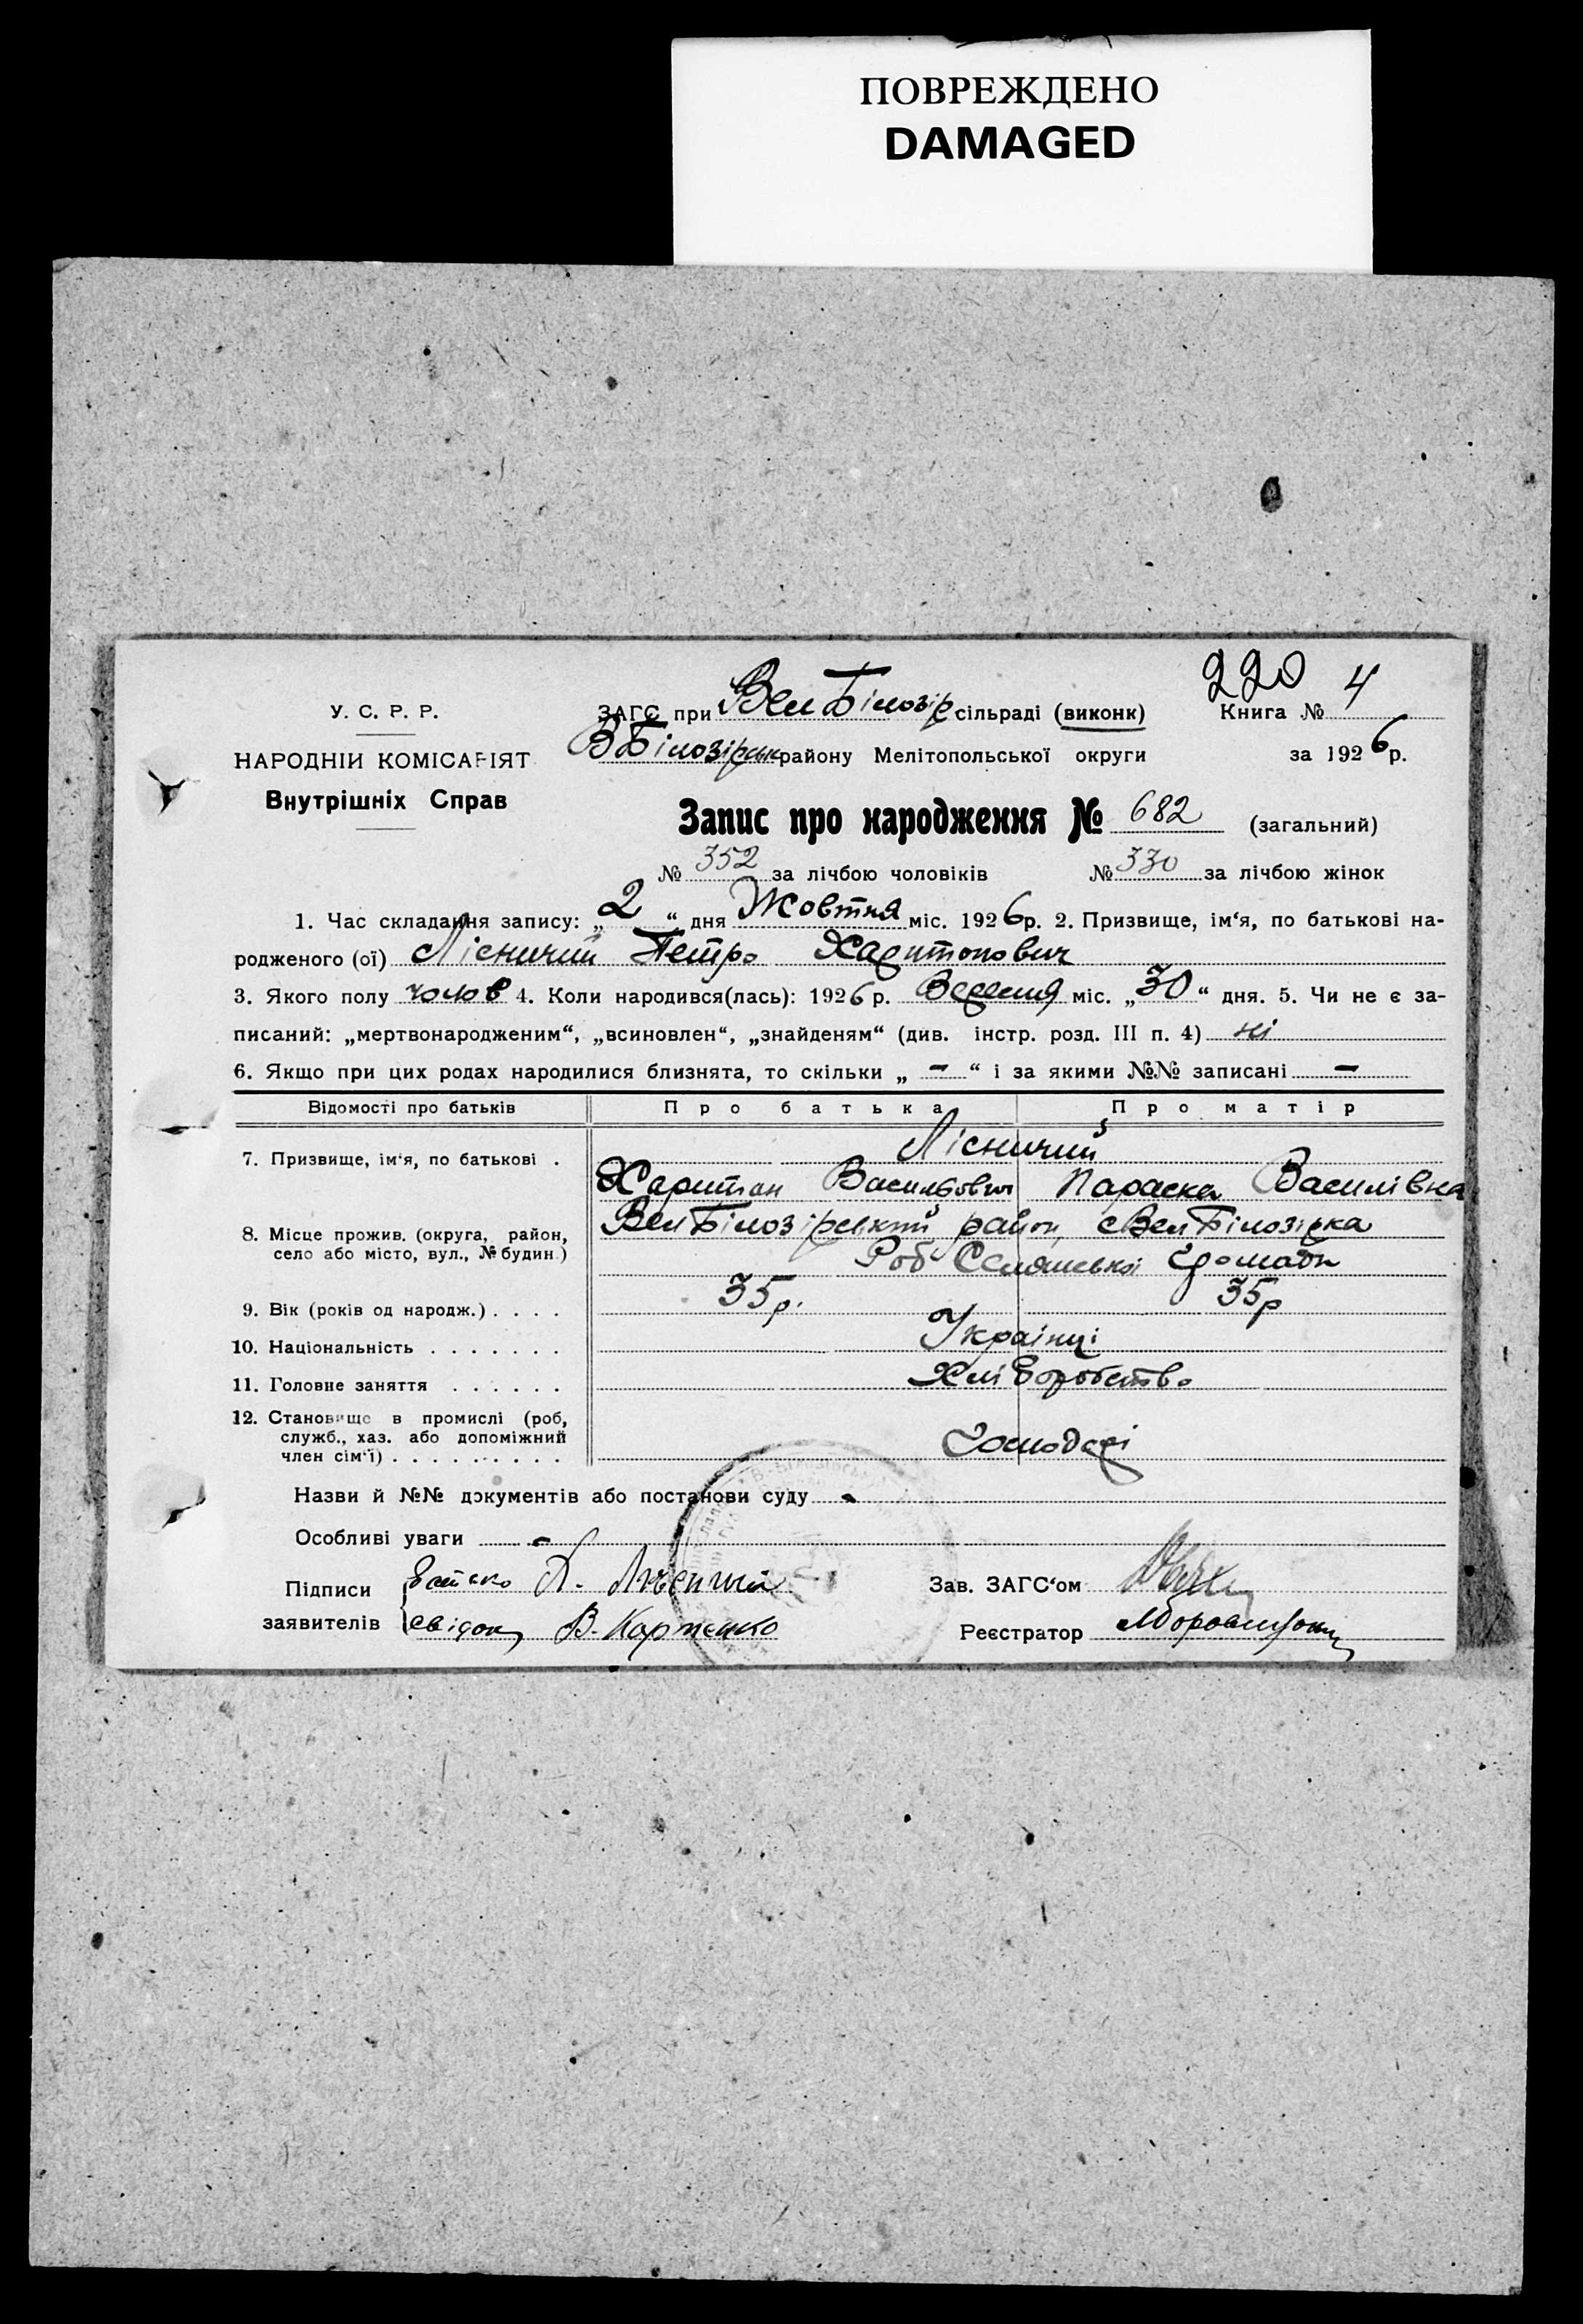 ПОВРЕЖДЕНО
DAMAGED
220
У. С. Р. Р.
ЗАГС при Вел Білозір сільраді (виконк)
Книга № 4
НАРОДНІЙ КОМІСАРІЯТ
В Білозірськ району Мелітопольської округи
за 1926 р.
Внутрішніх Справ
Запис про народження № 682 (загальний)
№ 352 за лічбою чоловіків № 330 за лічбою жінок
1. Час складання запису: „2“ дня Жовтня міс. 1926 р. 2. Призвище, ім‘я, по батькові на-
родженого (ої) Лісничий Петро Харитонович
3. Якого полу чолов 4. Коли народився(лась): 1926 р. Вересня міс. „30“ дня. 5. Чи не є за-
писаний: „мертвонародженим“, „всиновлен“, „знайденям“ (див. інстр. розд. III п. 4) ні
6. Якщо при цих родах народилися близнята, то скільки „ – “ і за якими №№ записані –
Відомості про батьків Про батька Про матір
7. Призвище, ім‘я, по батькові . Лісничий
Харитон Васильович Параска Василівна
8. Місце прожив. (округа, район, село або місто, вул., № будин.)
Вел Білозірський район, с Вел Білозірка
Роб Селянської громади
9. Вік (років од народж.) . . . . 35 р. 35 р
10. Національність . . . . . . . Українці
11. Головне заняття . . . . . . Хліборобство
12. Становище в промислі (роб,
служб., хаз. або допоміжний
член сім‘ї) . . . . . . . . . Господарі
Назви й №№ документів або постанови суду -
Особливі уваги -
Підписи заявителів
батько Х. Лісничий
свідок В. Карпенко
Зав. ЗАГС‘ом
Реєстратор